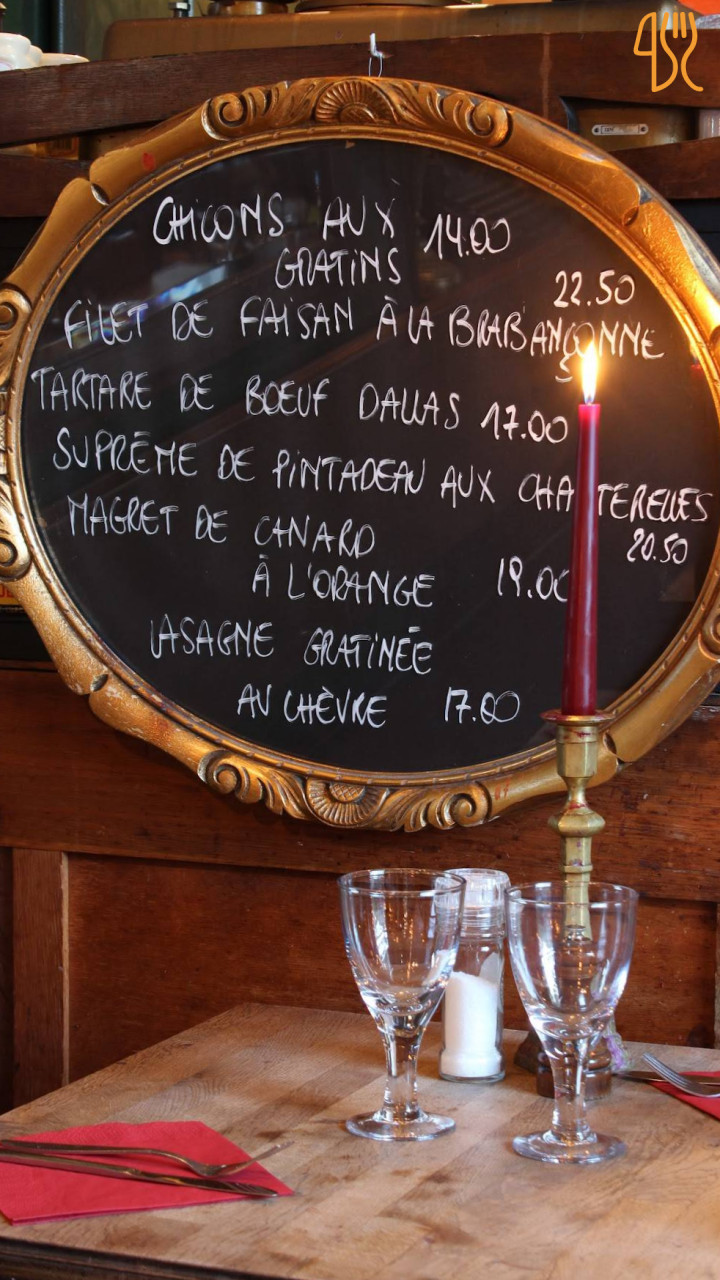 CHICONS AUX 14.00
GRATINS
22.50
FILET DE FAISAN À LA BRABANÇONNE
TARTARE DE BOEUF DALLAS 17.00
SUPRÊME DE PINTADEAU AUX CHANTERELLES
MAGRET DE CANARD 20.50
À L'ORANGE 19.00
LASAGNE GRATINÉE
AU CHÈVRE 17.00